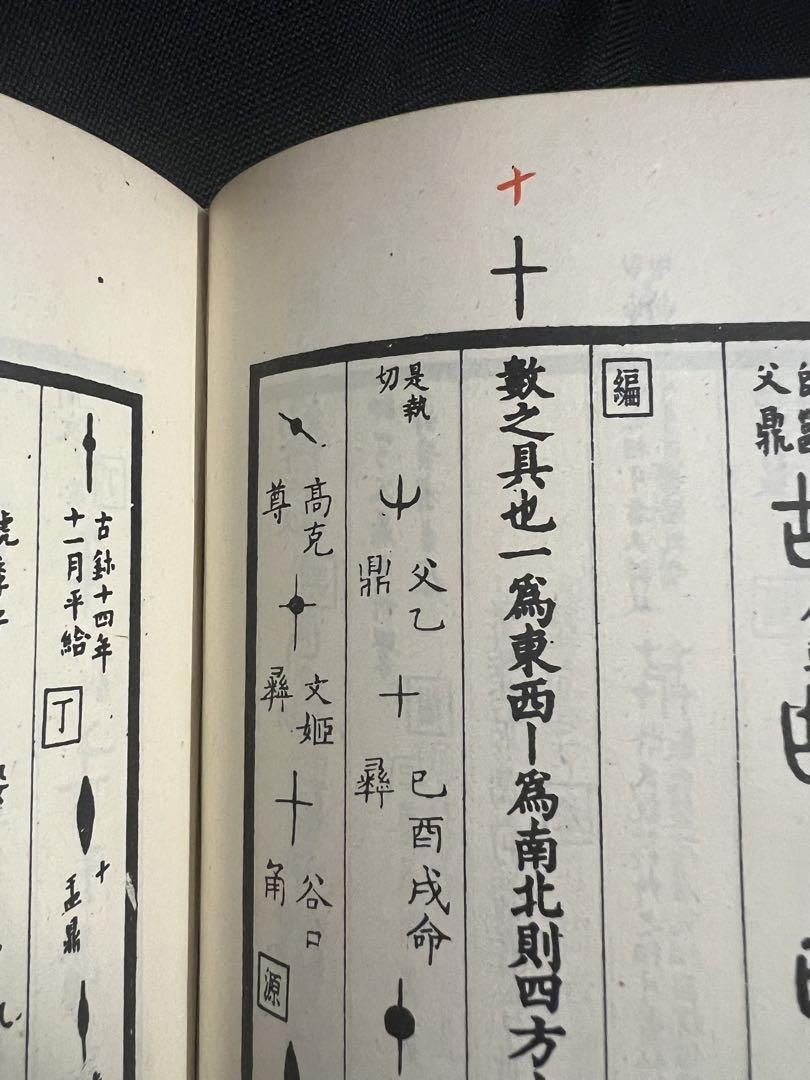 十
十
父鼎
編
數之具也一爲東西丨爲南北則四方
是執切
父乙鼎
十
己酉戌命彝
高克尊
文姬彝
十
谷口角
源
古鉥十四年十一月平給
丁
十
盂鼎